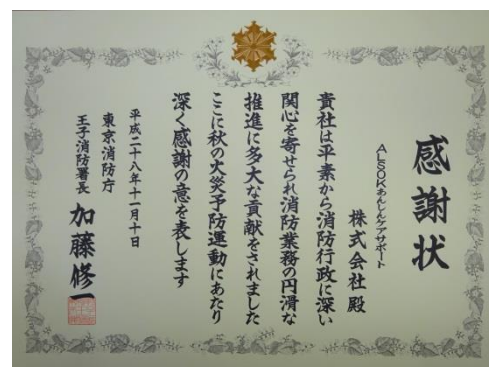 感謝状
ALSOKあんしんケアサポート
株式会社 殿
貴社は平素から消防行政に深い
関心を寄せられ消防業務の円滑な
推進に多大な貢献をされました
ここに秋の火災予防運動にあたり
深く感謝の意を表します
平成二十八年十一月十日
東京消防庁
王子消防署長 加藤修一